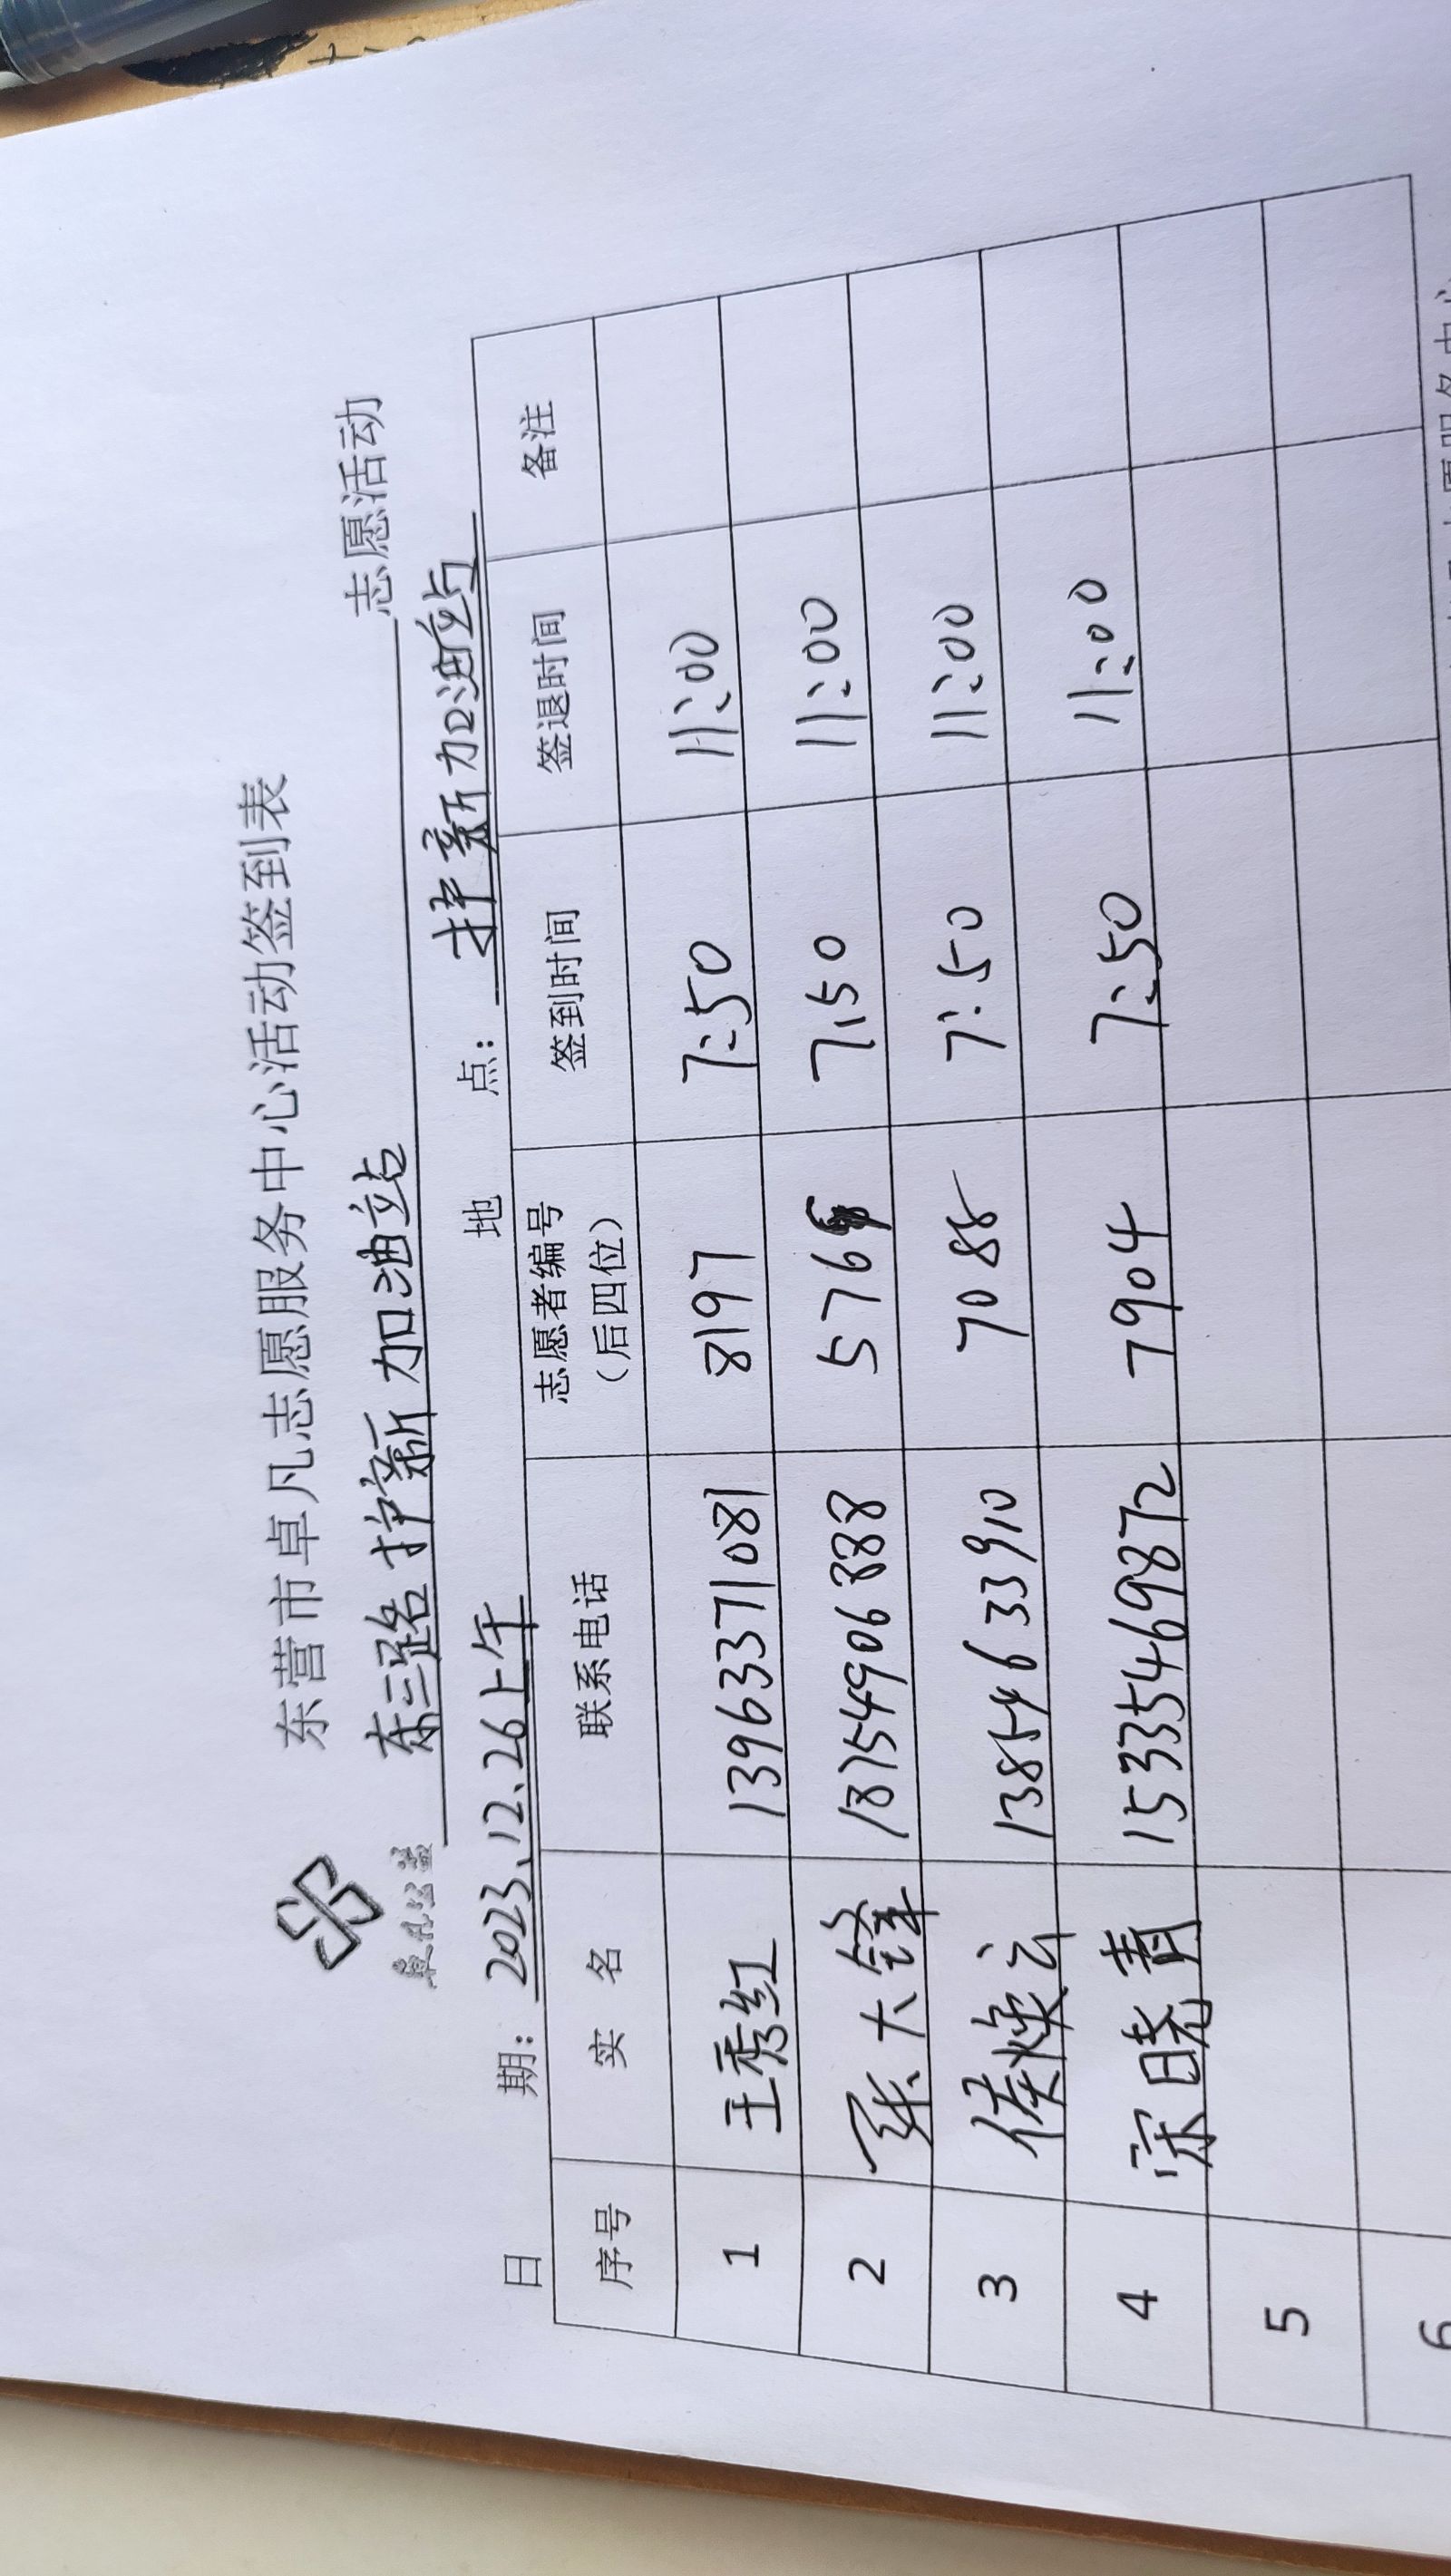 东营市卓凡志愿服务中心活动签到表
卓凡公益
东三路护新加油站 志愿活动
日 期：2023.12.26上午 地 点：护新加油站
序号 实 名 联系电话 志愿者编号（后四位） 签到时间 签退时间 备注
1 王秀红 13963371081 8197 7:50 11:00
2 张大锋 18754906888 576 7:50 11:00
3 侯焕云 13854633910 7088 7:50 11:00
4 宋晓青 15335469872 7904 7:50 11:00
5
6